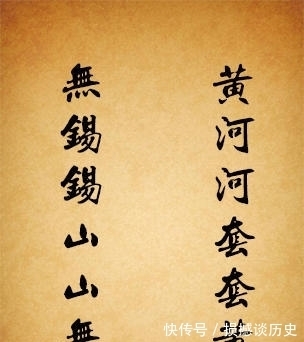 黄河河套套
無錫錫山山
快传号 / 损撼谈历史